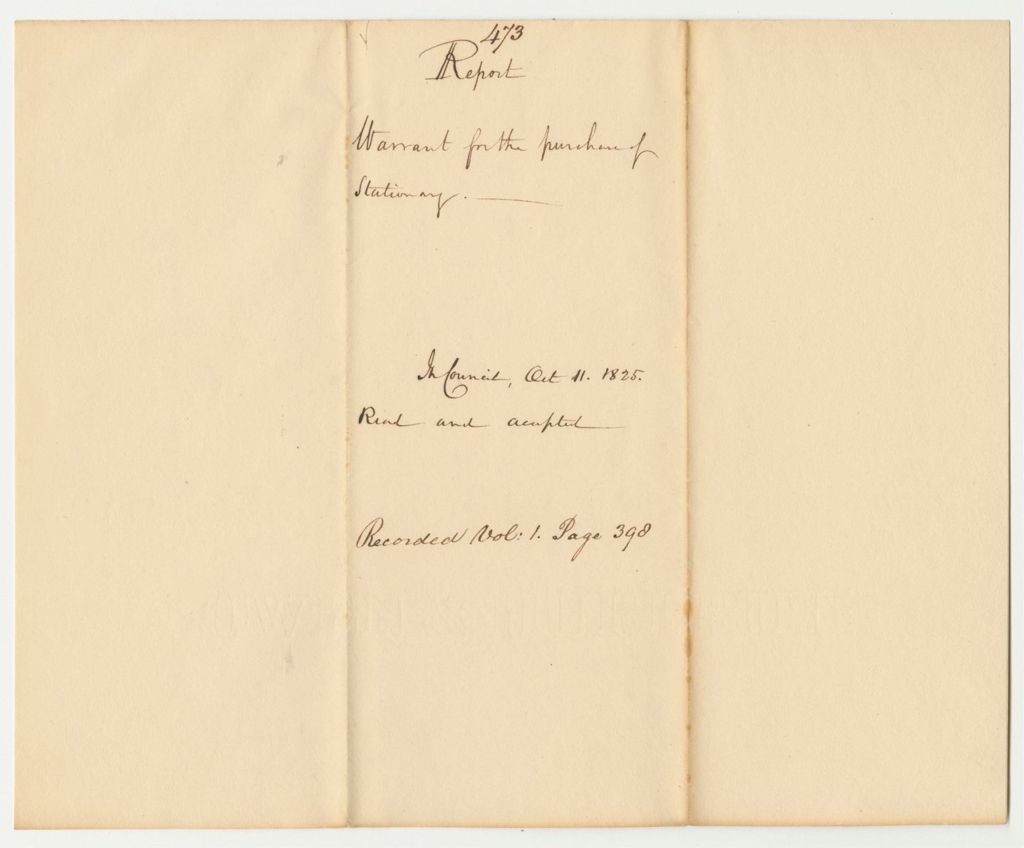 473
Report
Warrant for the purchase of
Stationary.
In Council, Oct 11. 1825.
Read and accepted
Recorded Vol: 1. Page 398